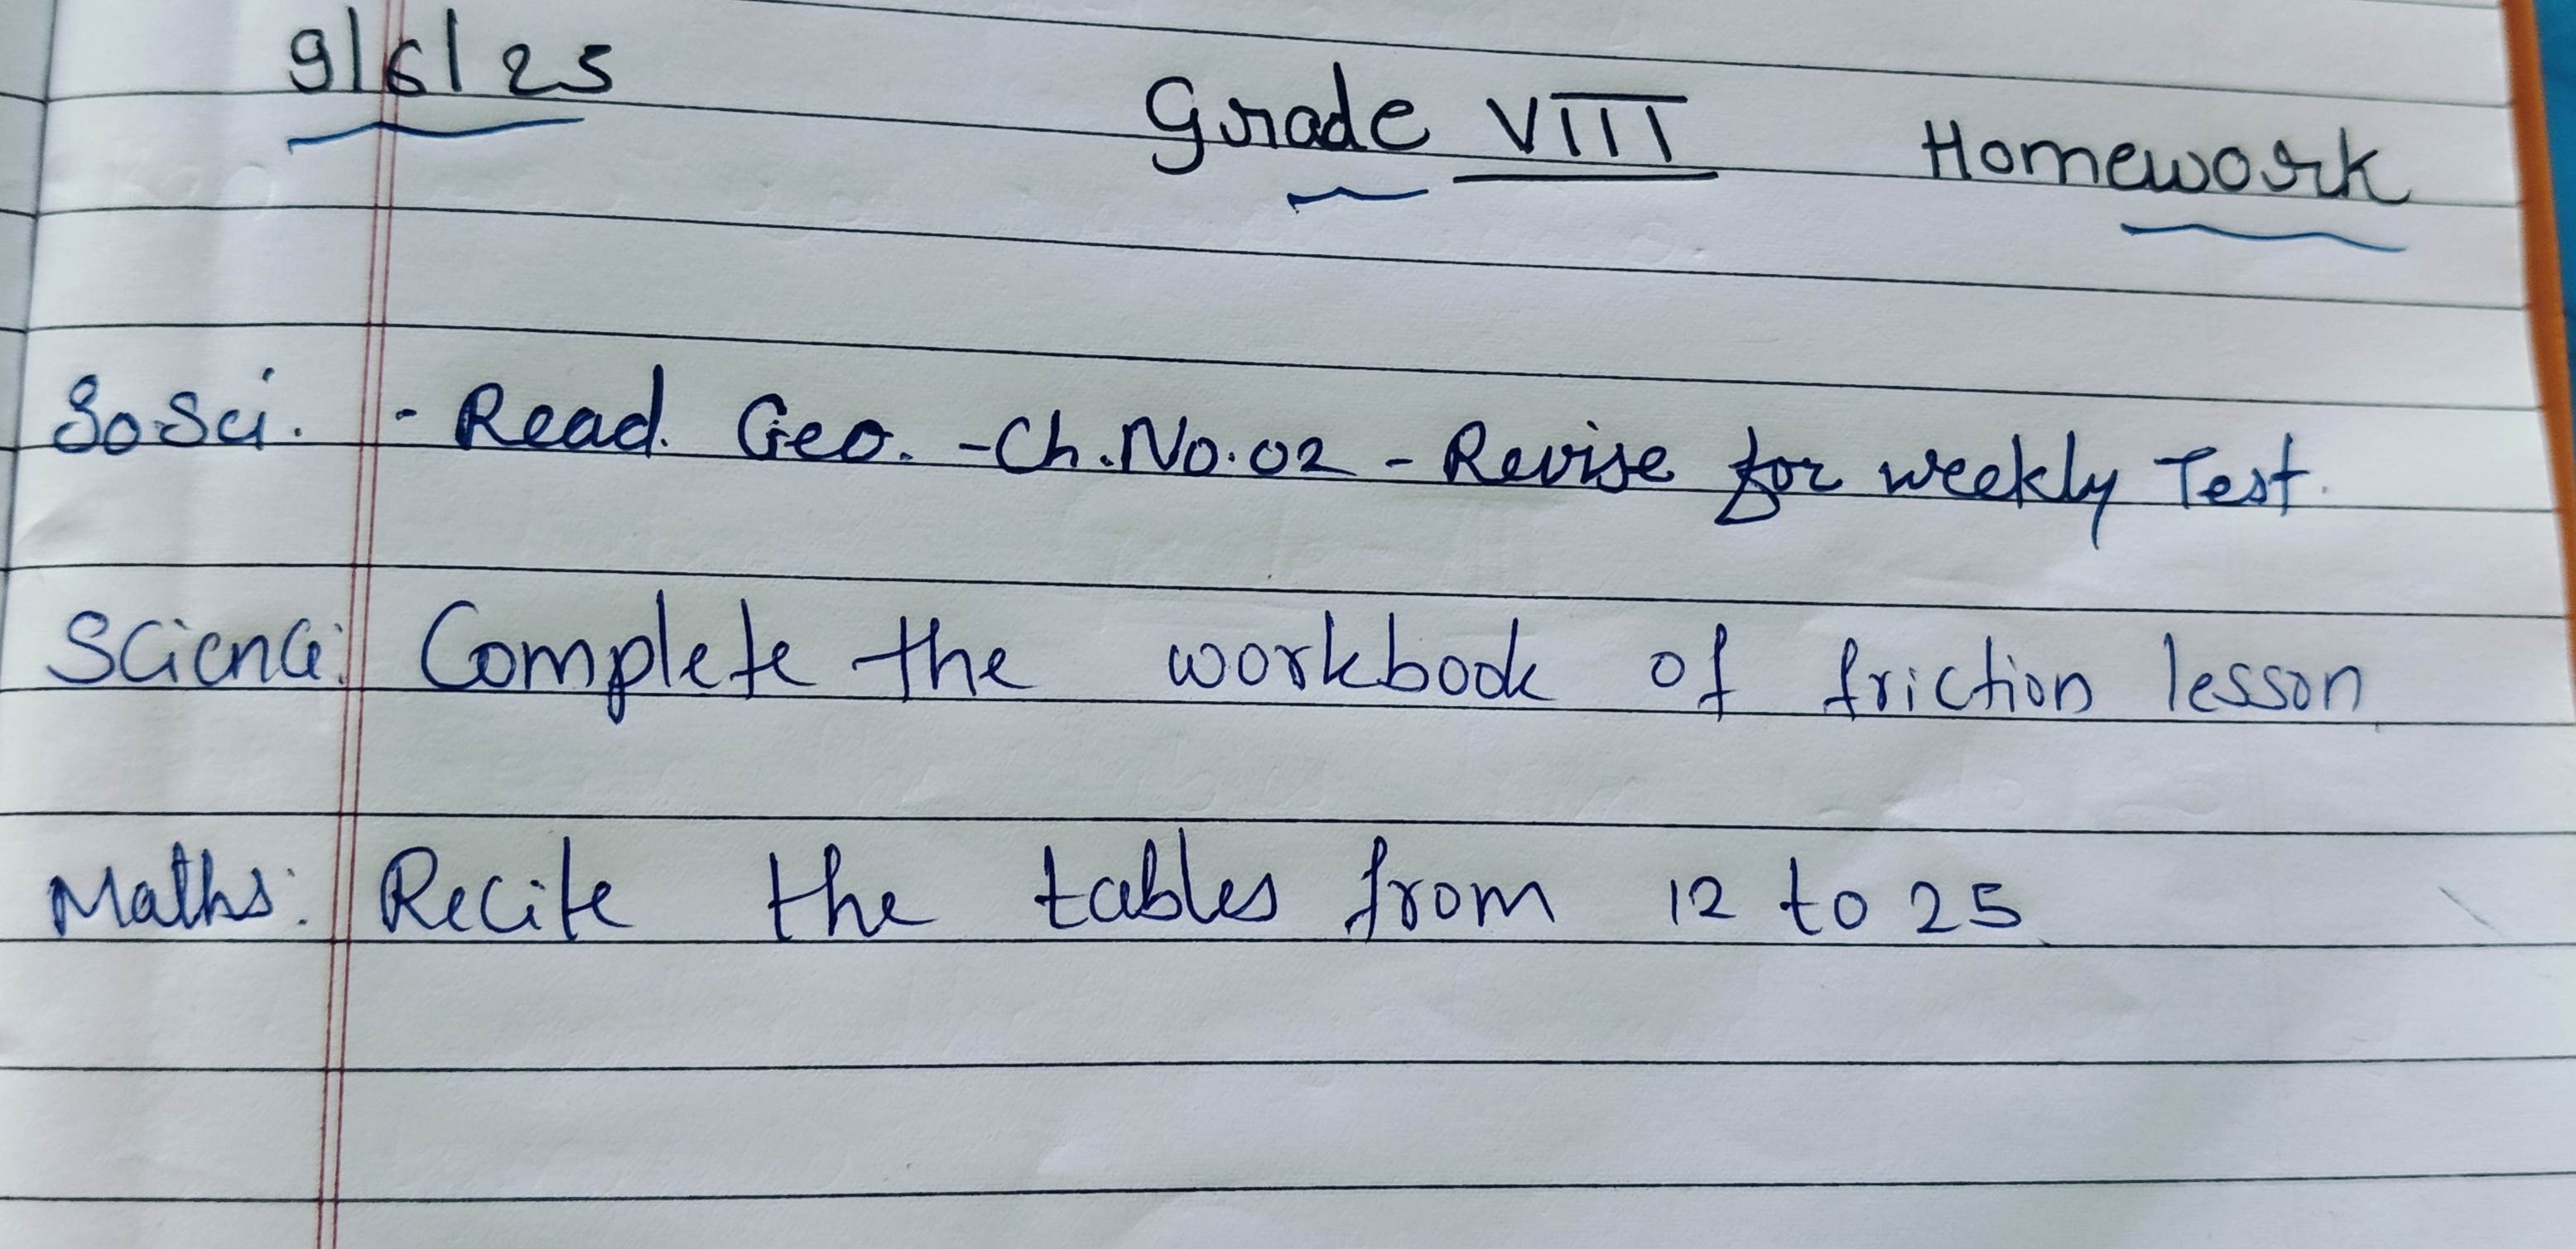 9/6/25
Grade VIII Homework
SoSci. - Read. Geo. - Ch. No. 02 - Revise for weekly Test.
Science: Complete the workbook of friction lesson
Maths: Recite the tables from 12 to 25